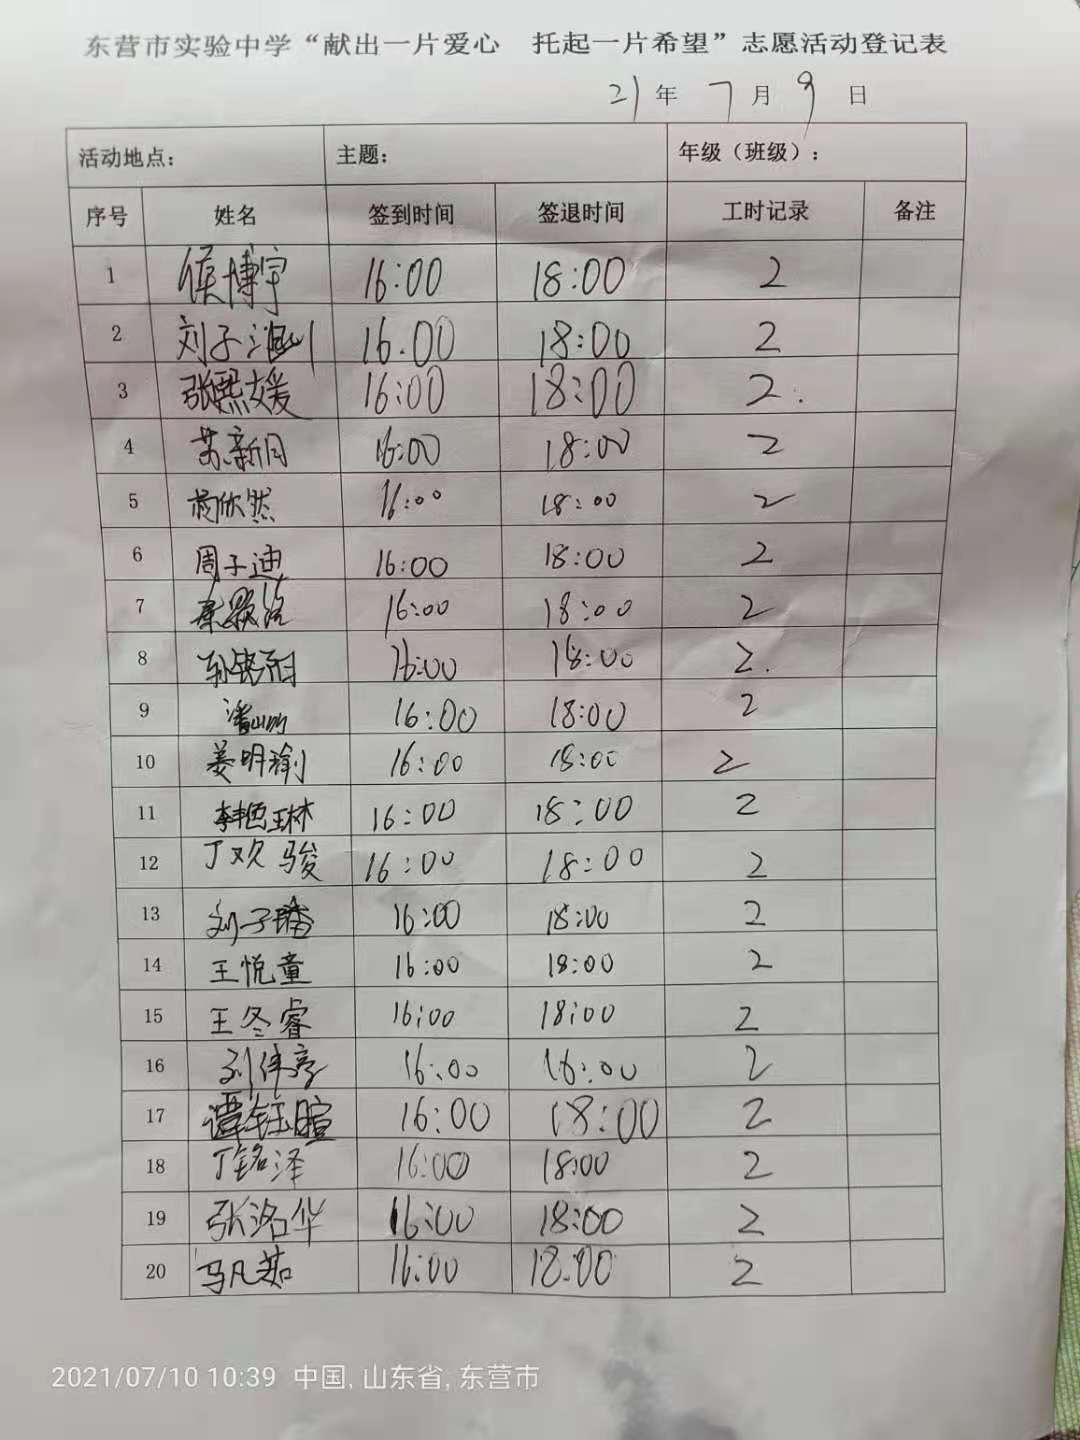 东营市实验中学“献出一片爱心 托起一片希望”志愿活动登记表
21年 7月 9日
活动地点： 主题： 年级（班级）：
序号 姓名 签到时间 签退时间 工时记录 备注
1 侯博宇 16:00 18:00 2
2 刘子 16.00 18:00 2
3 张熙媛 16:00 18:00 2.
4 苏新月 16:00 18:00 2
5 欣然 16:00 18:00 2
6 周子迪 16:00 18:00 2
7 16:00 18:00 2
8 孙铭阳 16:00 18:00 2.
9 潘 16:00 18:00 2
10 姜明瑜 16:00 18:00 2
11 李艳琳 16:00 18:00 2
12 丁欢骏 16:00 18:00 2
13 刘子璠 16:00 18:00 2
14 王悦童 16:00 18:00 2
15 王冬睿 16:00 18:00 2
16 刘伟 16:00 16:00 2
17 谭钰暄 16:00 18:00 2
18 丁铭泽 16:00 18:00 2
19 张洺华 16:00 18:00 2
20 马凡茹 16:00 18:00 2
2021/07/10 10:39 中国, 山东省, 东营市